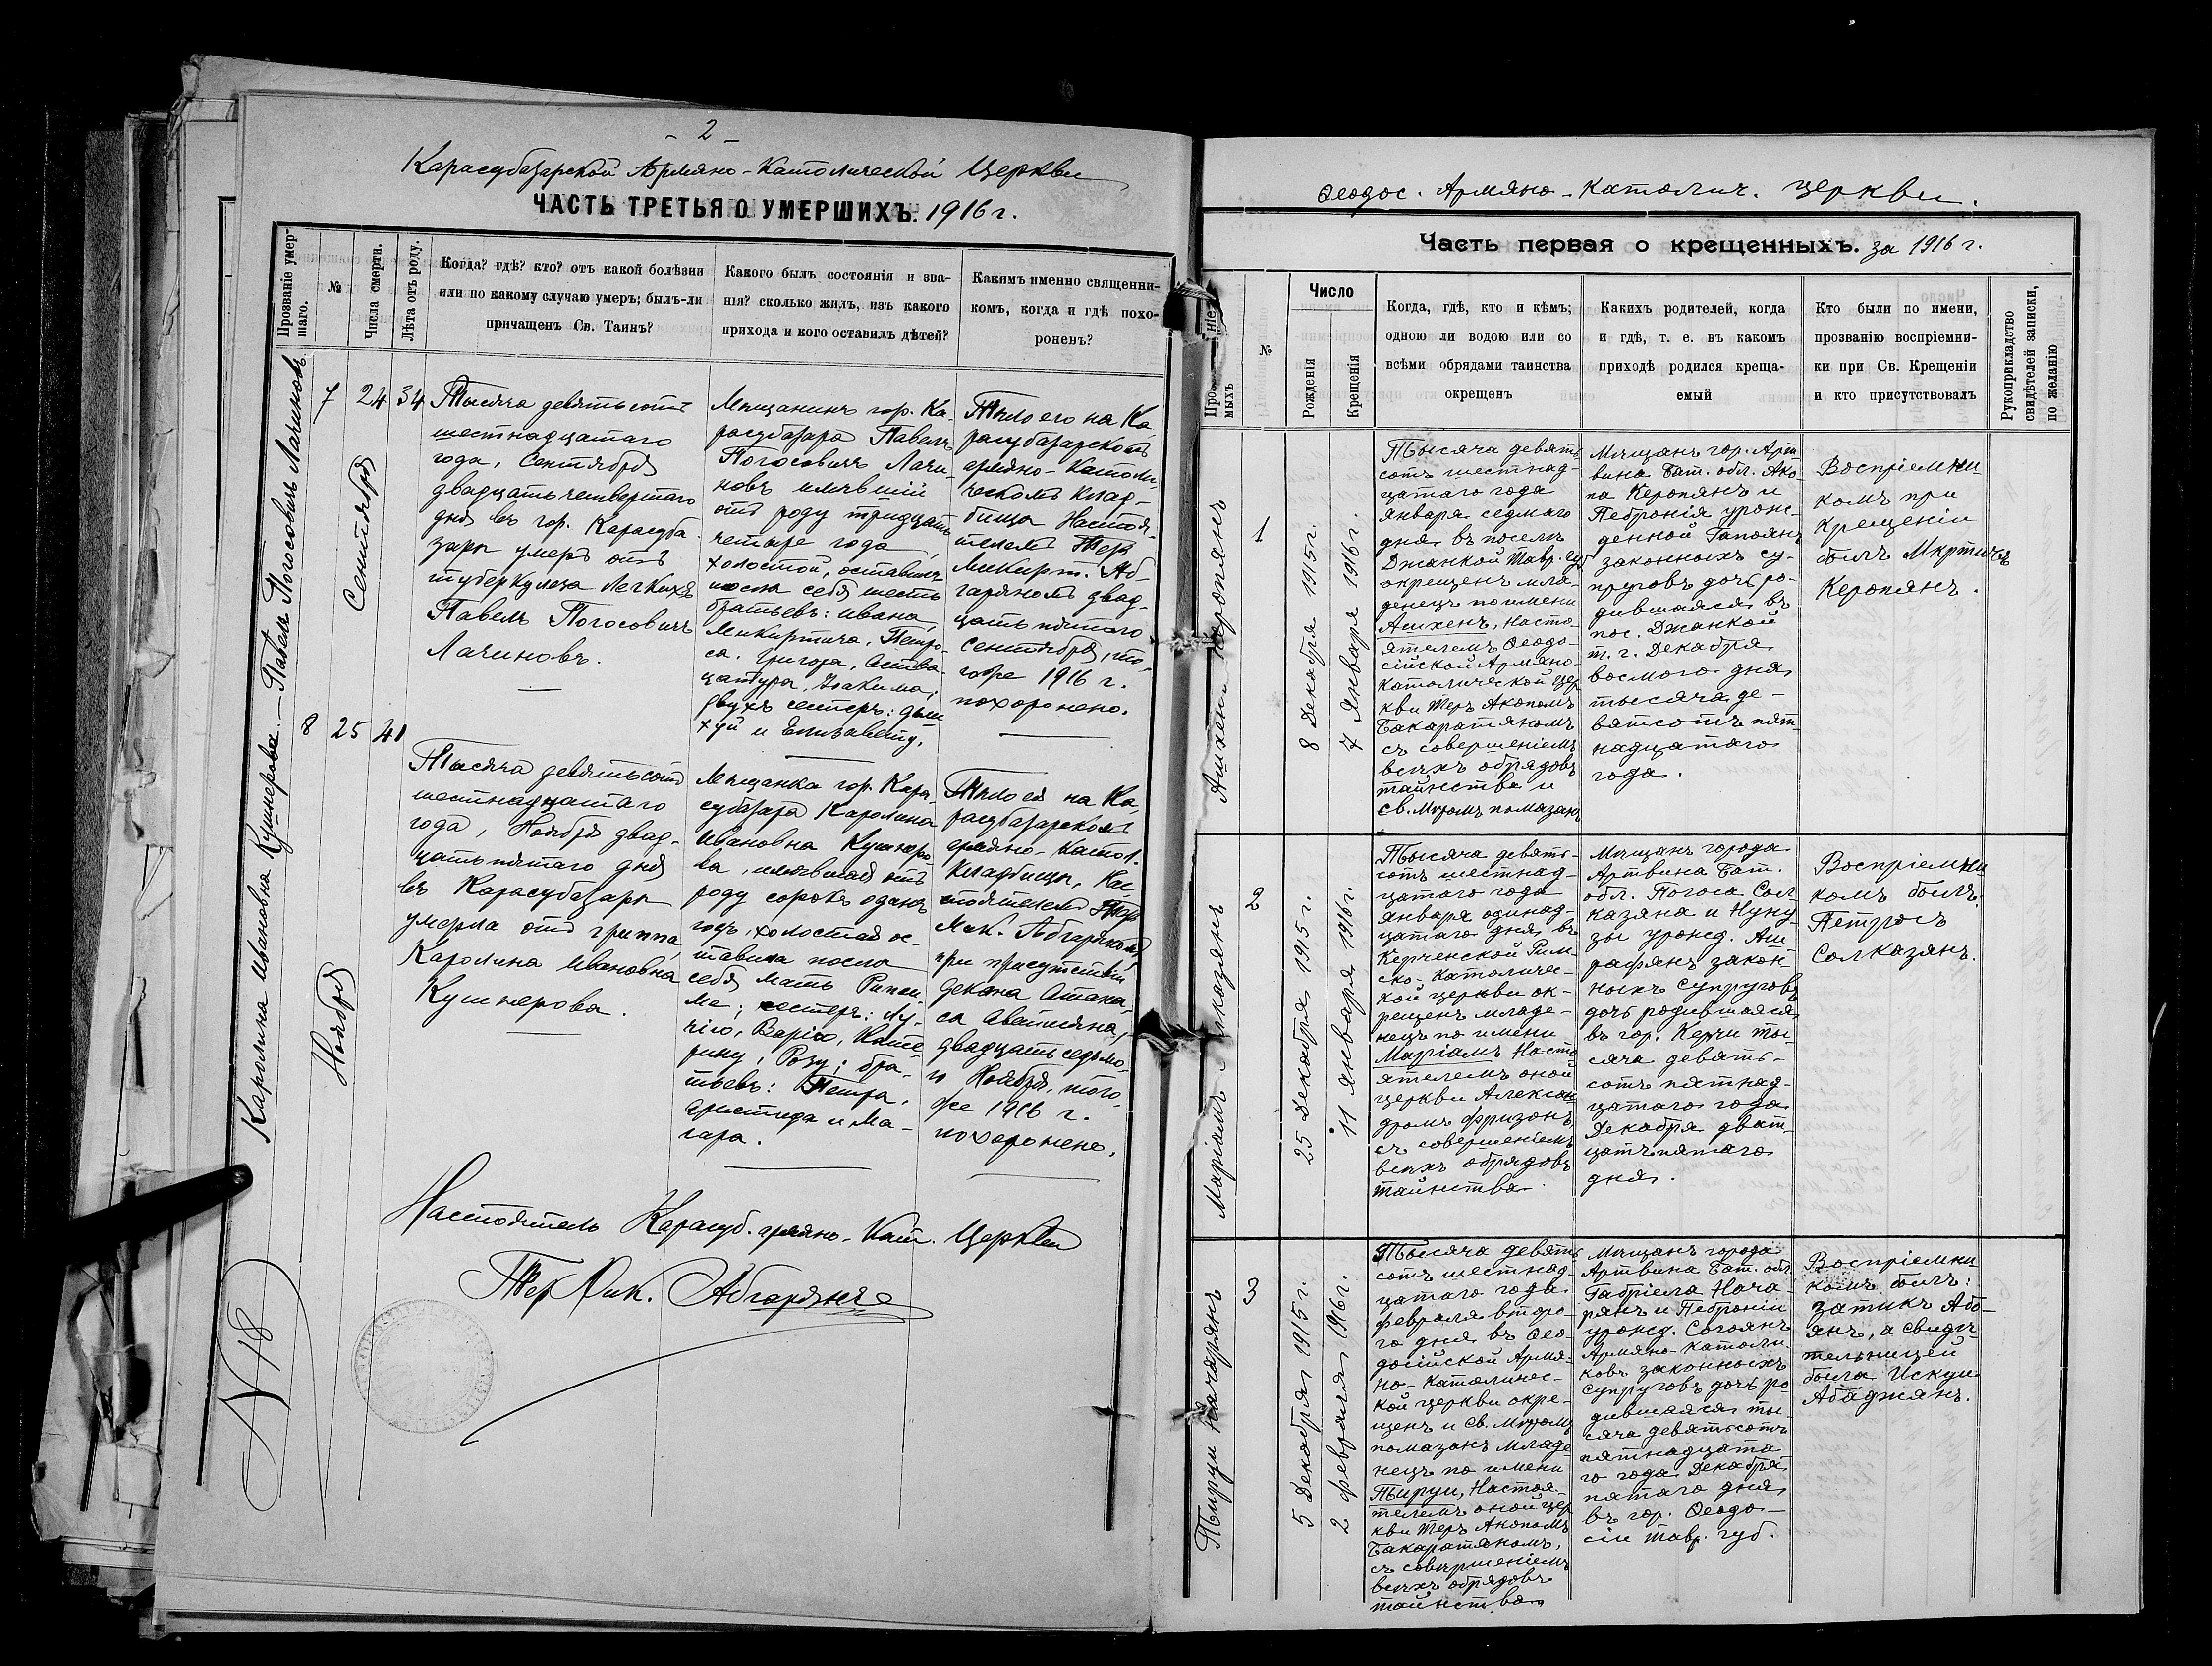 - 2 -
Карасубазарской Армяно-Католической Церкви
ЧАСТЬ ТРЕТЬЯ О УМЕРШИХЪ. 1916 г.
Прозваніе умер-
шаго.
№
Числа смерти.
Лѣта отъ роду.
Когда? гдѣ? кто? отъ какой болѣзни
или по какому случаю умеръ; былъ-ли
причащенъ Св. Таинъ?
Какого былъ состоянія и зва-
нія? сколько жилъ, изъ какого
прихода и кого оставилъ дѣтей?
Какимъ именно священни-
комъ, когда и гдѣ похо-
роненъ?
Павелъ Погосовичъ Лачиновъ
7
24
Сентября
34
Тысяча девятьсотъ
шестнадцатаго
года, Сентября
двадцать четвертаго
дня въ гор. Карасуба-
зарѣ умеръ отъ
туберкулеза легкихъ
Павелъ Погосовичъ
Лачиновъ.
Мѣщанинъ гор. Ка-
расубазара Павелъ
Погосовичъ Лачи-
новъ имѣвшій
отъ роду тридцать
четыре года,
холостой, оставилъ
послѣ себя шесть
братьевъ: Ивана,
Микиртича, Петро-
са, Григора, Аства-
цатура, Іоакима,
двухъ сестеръ:
и Елизавету.
Тѣло его на Ка-
расубазарскомъ
армяно-Католи-
ческомъ Клад-
бищѣ Настоя-
телемъ Теръ
Микирт. Аб-
гаряномъ двад-
цать пятаго
Сентября, то-
гоже 1916 г.
похоронено.
Каролина Ивановна Кушнерова
8
25
Ноября
41
Тысяча девятьсотъ
шестнадцатаго
года, Ноября двад-
цать пятаго дня
въ Карасубазарѣ
умерла отъ гриппа
Каролина Ивановна
Кушнерова.
Мѣщанка гор. Кара-
субазара Каролина
Ивановна Кушнеро-
ва, имѣвшая отъ
роду сорокъ одинъ
годъ, холостая ос-
тавила послѣ
себя мать Рипси-
ме; сестеръ: Лу-
чію, Варію, Кате-
рину, Розу; бра-
тьевъ: Петра,
Аристида и Ма-
гара.
Тѣло ея на Ка-
расубазарскомъ
армяно-Катол.
Кладбищѣ, Нас-
тоятелемъ Теръ
Мик. Абгаряномъ
при присутствіи
декана Атана-
са Аветияна,
двадцать седьмо-
го Ноября, того-
же 1916 г.
похоронено.
Настоятель Карасуб. армяно-Кат. Церкви
Тер Мик. Абгарянъ
N 18
Ѳеодос. Армяно-Католич. церкви.
Часть первая о крещенныхъ. за 1916 г.
№
Число
Рожденія
Крещенія
Когда, гдѣ, кто и кѣмъ;
одною ли водою или со
всѣми обрядами таинства
окрещенъ
Какихъ родителей, когда
и гдѣ, т. е. въ какомъ
приходѣ родился креща-
емый
Кто были по имени,
прозванію воспріемни-
ки при Св. Крещеніи
и кто присутствовалъ
Рукоприкладство
свидѣтелей записки,
по желанію
Ашхенъ Керопянъ
1
8 Декабря 1915 г.
7 Января 1916 г.
Тысяча девять
сотъ шестнад-
цатаго года
января седмаго
дня въ поселѣ
Джанкой Тавр. губ
окрещенъ мла-
денецъ по имени
Ашхенъ, Насто-
ятелемъ Ѳеодо-
сійской Армяно-
католической цер
кви Теръ Акопомъ
Бакаратяномъ
съ совершеніемъ
всѣхъ обрядовъ
таинства и
св. Муромъ помазанъ
Мѣщанъ гор. Арт-
вина Бат. обл. Ако-
па Керопянъ и
Пебронія урож-
денной Гапоянъ
законныхъ су-
пруговъ дочь ро-
дившаяся въ
пос. Джанкой
т. г. Декабря
восмого дня
тысяча де-
вятсотъ пят-
надцатаго
года.
Воспріемни-
комъ при
крещеніи
былъ Мкртичъ
Керопянъ.
Маріамъ Салказянъ
2
25 Декабря 1915 г.
11 января 1916 г.
Тысяча девять-
сотъ шестнад-
цатаго года
января одинад-
цатаго дня въ
Керченской Рим-
ско-католичес-
кой церкви ок-
рещенъ младе-
нецъ по имени
Маріамъ Насто
ятелемъ оной
церкви Алексан
дромъ Фризонъ
съ совершеніемъ
всѣхъ обрядовъ
таинства.
Мѣщанъ города
Артвина Бат.
обл. Погоса Сал
казяна и Нуну
зы урожд. Аш-
рафянъ закон-
ныхъ супруговъ
дочь родившаяся
въ гор. Керчи ты-
сяча девять-
сотъ пятнад-
цатаго года
Декабря дват-
цать пятаго
дня.
Воспріемни
комъ былъ
Петросъ
Салказянъ.
Пируи Начарянъ
3
5 Декабря 1915 г.
2 февраля 1916 г.
Тысяча девять
сотъ шестнад-
цатаго года
февраля второ-
го дня въ Ѳео-
досійской Армя-
но-католичес-
кой церкви окре-
щенъ и св. Муромъ
помазанъ младе
нецъ по имени
Пируи, Настоя-
телемъ оной цер
кви Теръ Акопомъ
Бакаратяномъ,
съ совершеніемъ
всѣхъ обрядовъ
таинства
Мѣщанъ города
Артвина Бат. обл.
Габріела Нача-
рянъ и Пеброніи
урожд. Согоянъ
Армяно-католи
ковъ законныхъ
супруговъ дочь ро
дившаяся ты-
сяча девятьсотъ
пятнадцата
го года Декабря
пятаго дня
въ гор. Ѳеодо-
сіи Тавр. губ.
Воспріемни
комъ былъ:
Затикъ Або-
янъ, а свидѣ-
тельницей
была Искуи
Абаджянъ.